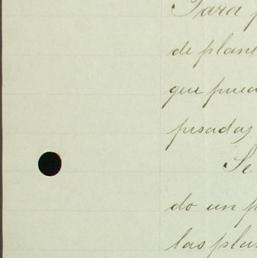 Para
de plan
que pued
pesadas
Se
do un p
las plan